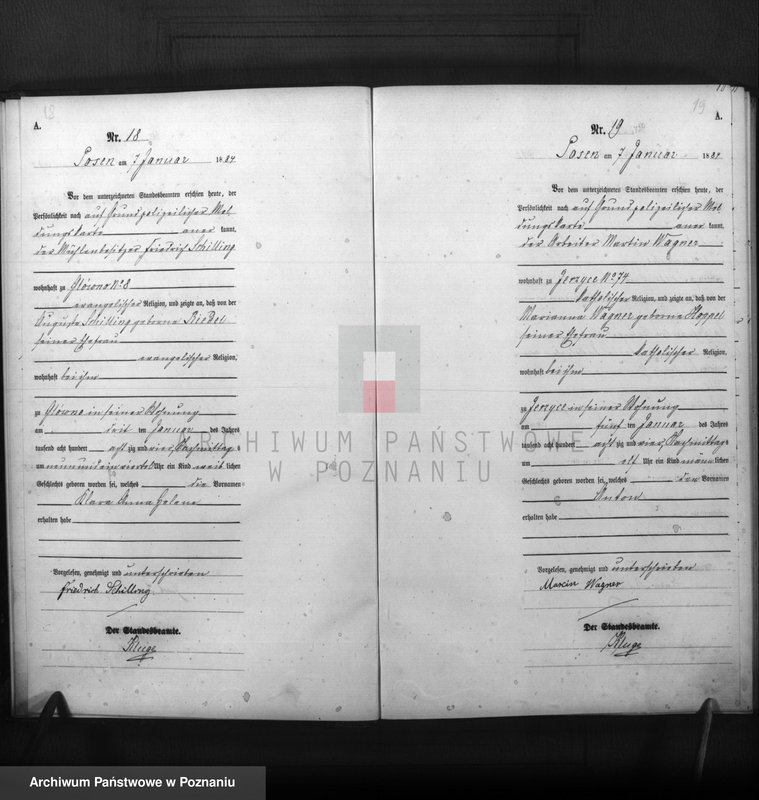 18
A.
Nr. 18
Posen am 7 Januar 1884.
Vor dem unterzeichneten Standesbeamten erschien heute, der
Persönlichkeit nach auf Grund polizeilicher Mel
dungskarte aner kannt,
der Mühlenbesitzer Friedrich Schilling
wohnhaft zu Glowno No 8
evangelischer Religion, und zeigte an, daß von der
Auguste Schilling geborne Riedel
seiner Ehefrau
evangelischer Religion,
wohnhaft bei ihm
zu Glowno in seiner Wohnung
am ten Januar des Jahres
tausend acht hundert acht zig und vier Nachmittag s
um neun und ein viertel Uhr ein Kind weib lichen
Geschlechts geboren worden sei, welches die Vornamen
Klara Anna Helene
erhalten habe
Vorgelesen, genehmigt und unterschrieben
Friedrich Schilling
Der Standesbeamte.
Kluge
19
A.
Nr. 19
Posen am 7 Januar 1884
Vor dem unterzeichneten Standesbeamten erschien heute, der
Persönlichkeit nach auf Grund polizeilicher Mel
dungskarte aner kannt,
der Arbeiter Martin Wagner
wohnhaft zu Jerzyce No 74
katholischer Religion, und zeigte an, daß von der
Marianna Wagner geborne Hoppel
seiner Ehefrau
katholischer Religion,
wohnhaft bei ihm
zu Jerzyce in seiner Wohnung
am fünf ten Januar des Jahres
tausend acht hundert acht zig und vier Nachmittag s
um elf Uhr ein Kind männ lichen
Geschlechts geboren worden sei, welches den Vornamen
Anton
erhalten habe
Vorgelesen, genehmigt und unterschrieben
Marcin Wagner
Der Standesbeamte.
Kluge
ARCHIWUM PAŃSTWOWE
W POZNANIU
Archiwum Państwowe w Poznaniu